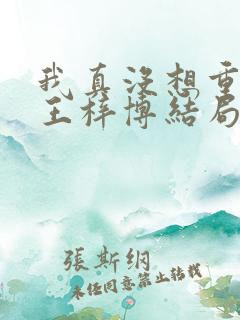 我真没想重
王梓博結局
張斯綱
未经同意禁止转载